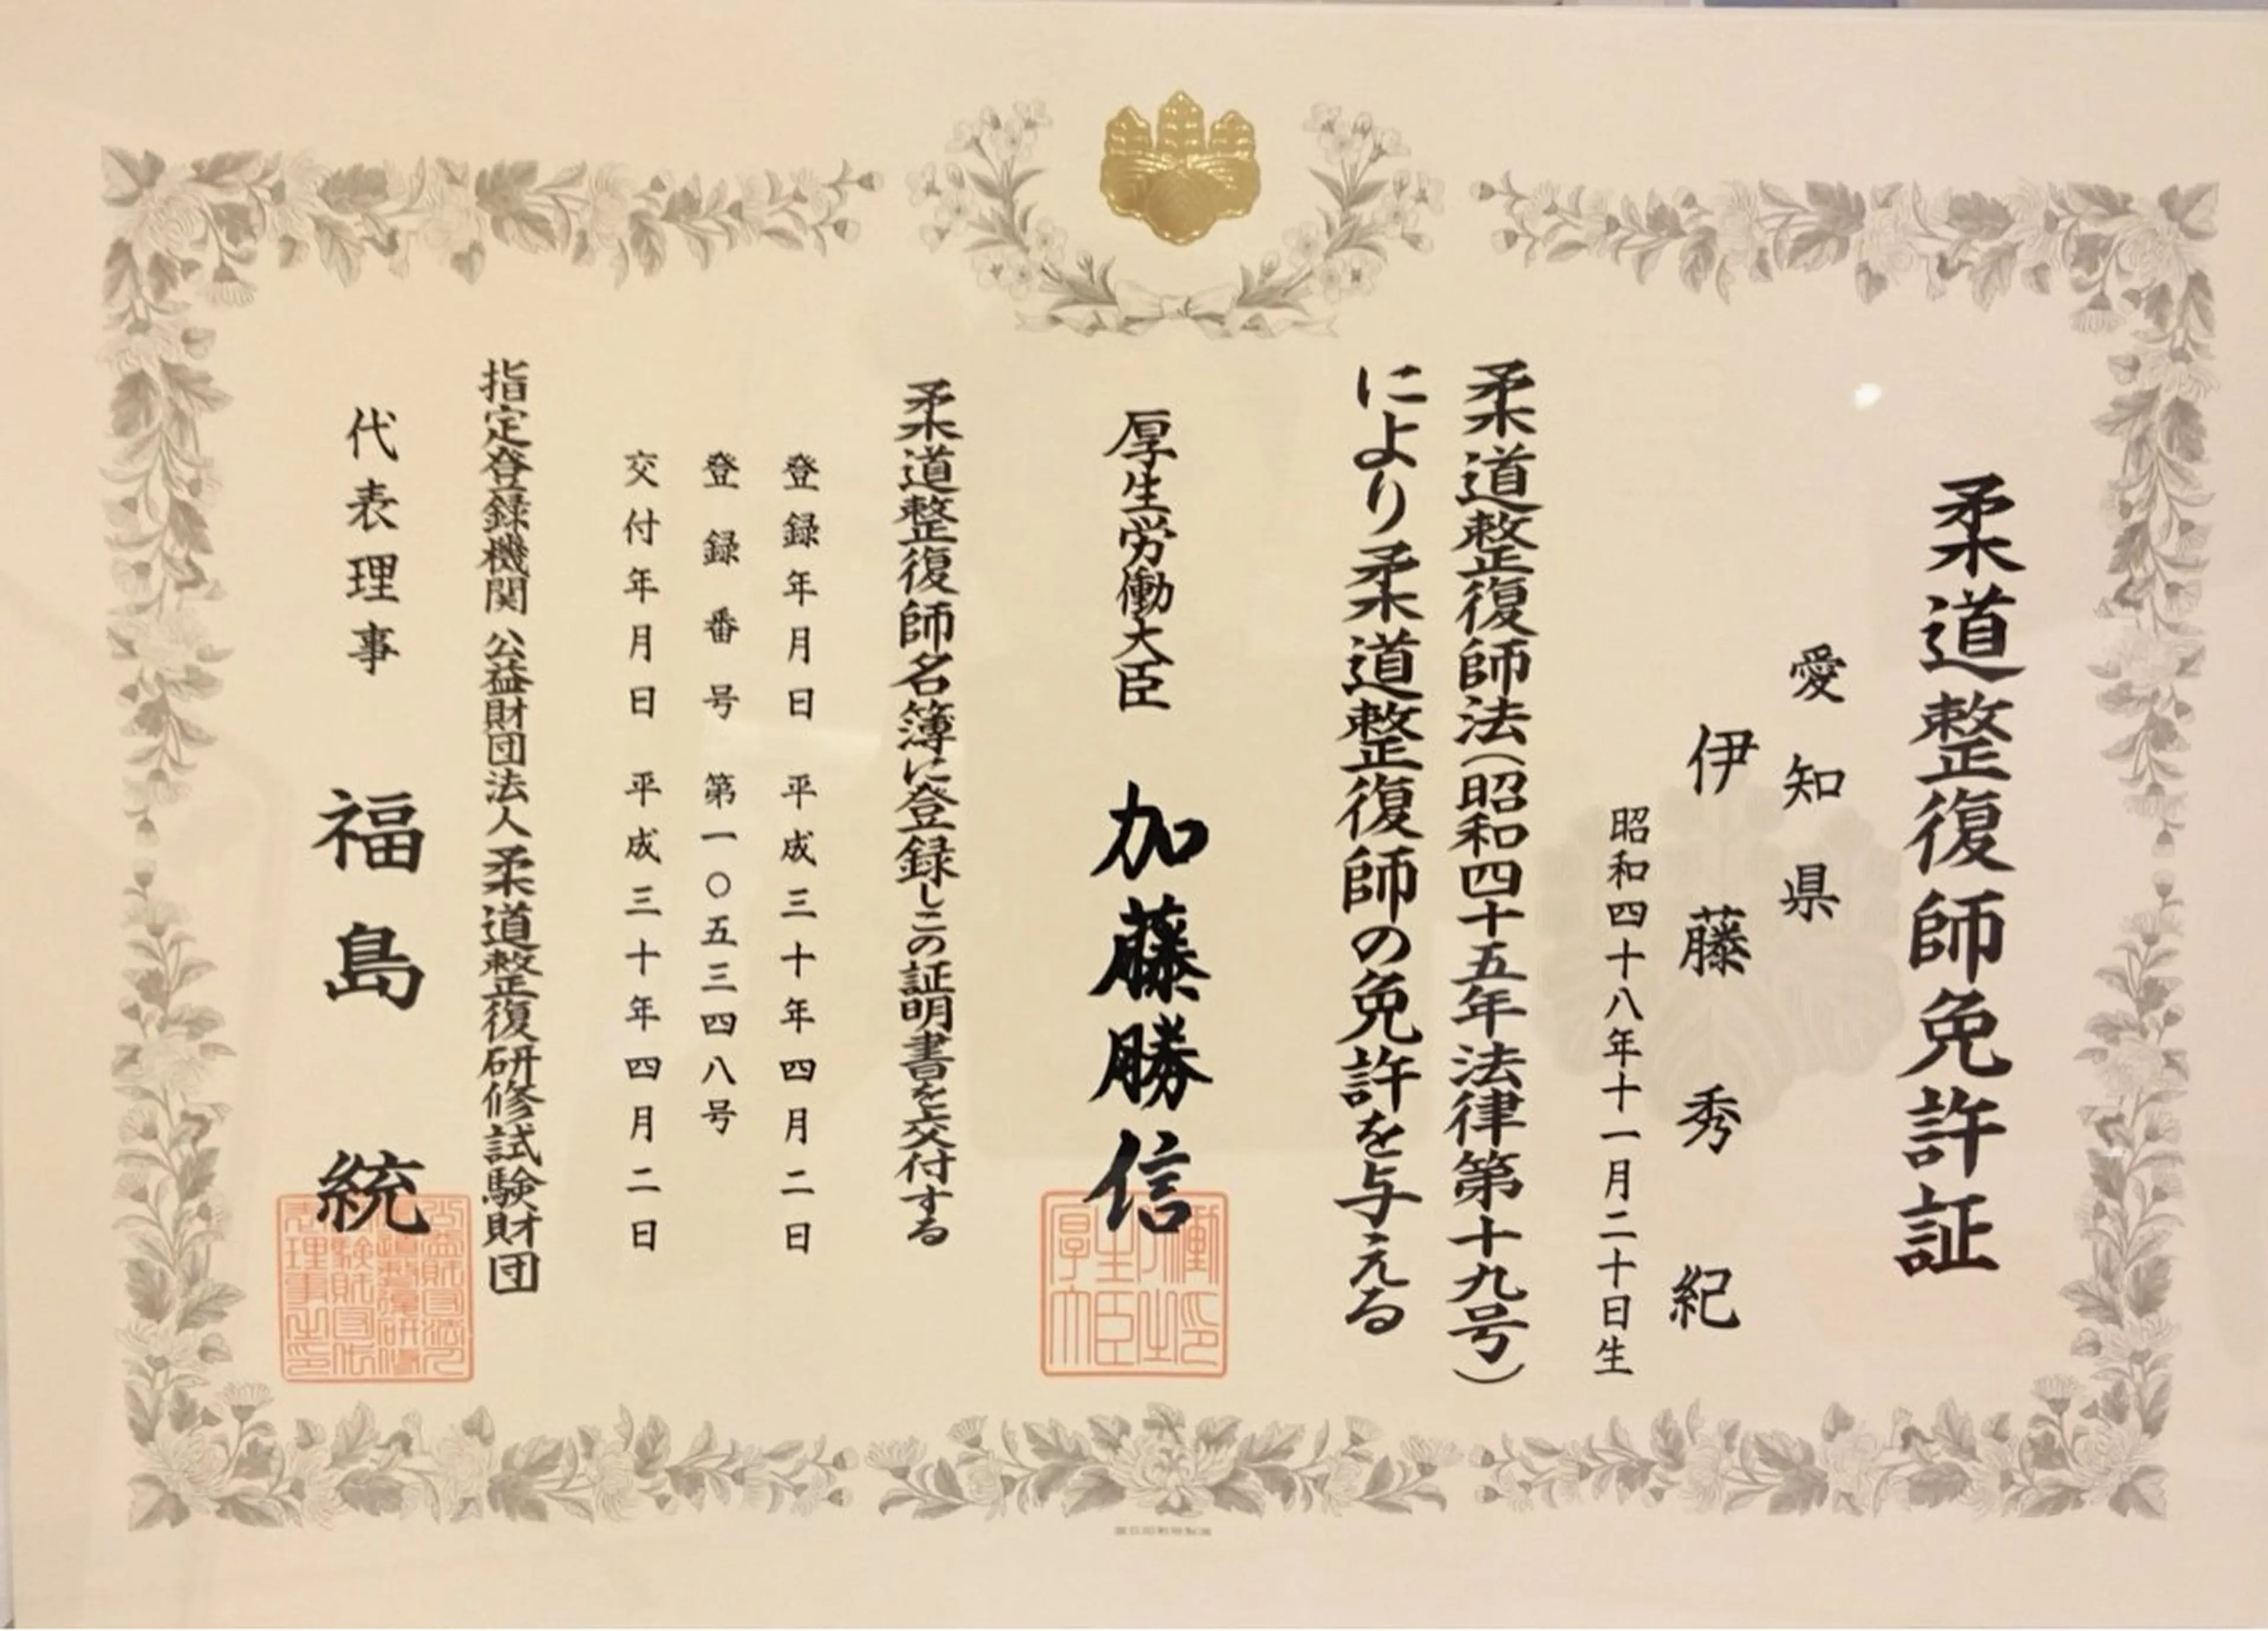 柔道整復師免許証
愛知県
伊藤秀紀
昭和四十八年十一月二十日生
柔道整復師法(昭和四十五年法律第十九号)
により柔道整復師の免許を与える
厚生労働大臣 加藤勝信
柔道整復師名簿に登録しこの証明書を交付する
登録年月日 平成三十年四月二日
登録番号 第一〇五三四八号
交付年月日 平成三十年四月二日
指定登録機関 公益財団法人柔道整復研修試験財団
代表理事 福島統